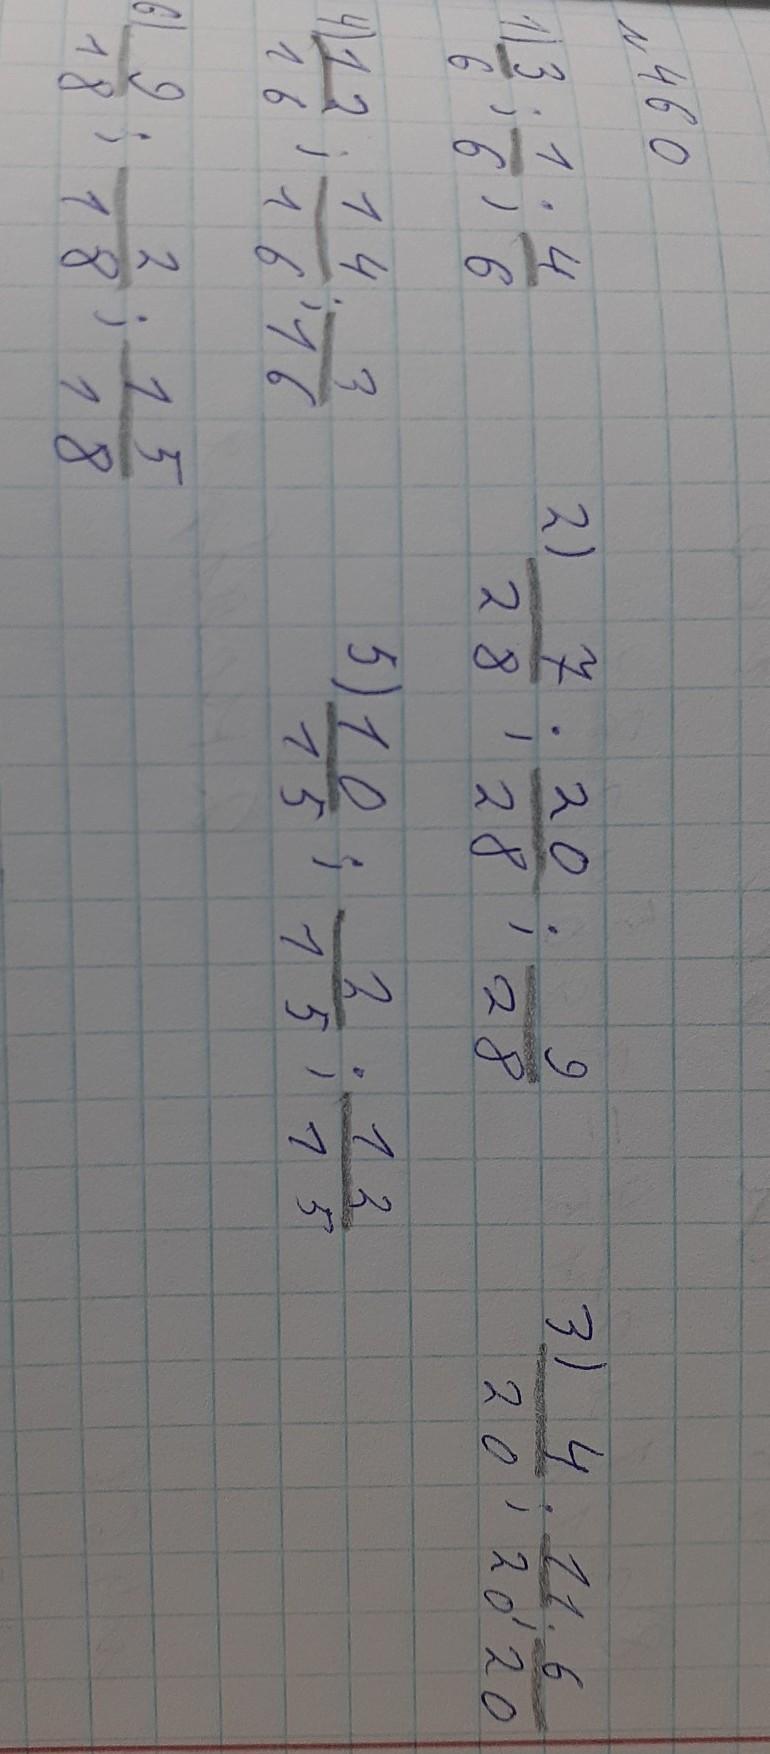 № 460
1) 3/6 ; 1/6 ; 4/6 2) 7/28 ; 20/28 ; 9/28 3) 4/20 ; 11/20 ; 6/20
4) 12/16 ; 14/16 ; 3/16 5) 10/15 ; 2/15 ; 12/15
6) 9/18 ; 2/18 ; 15/18